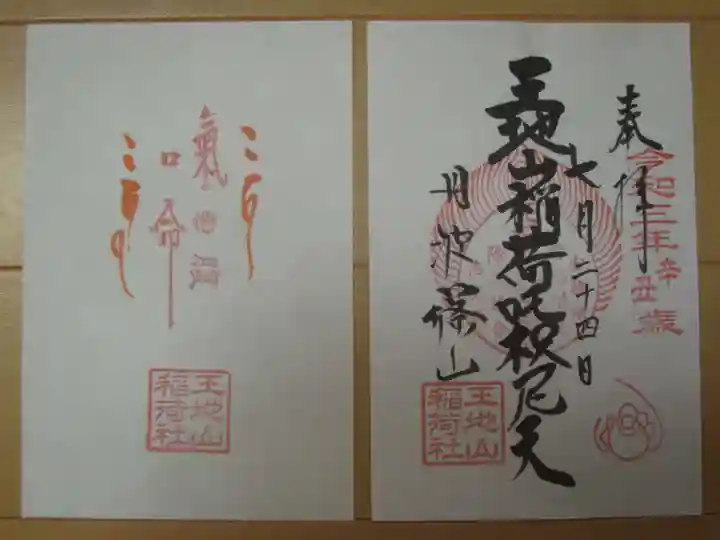 氣
命
王地山
稲荷社
奉拝
令和三年辛丑歳
七月二十四日
王地山稲荷吒枳尼天
丹波篠山
王地山
稲荷社